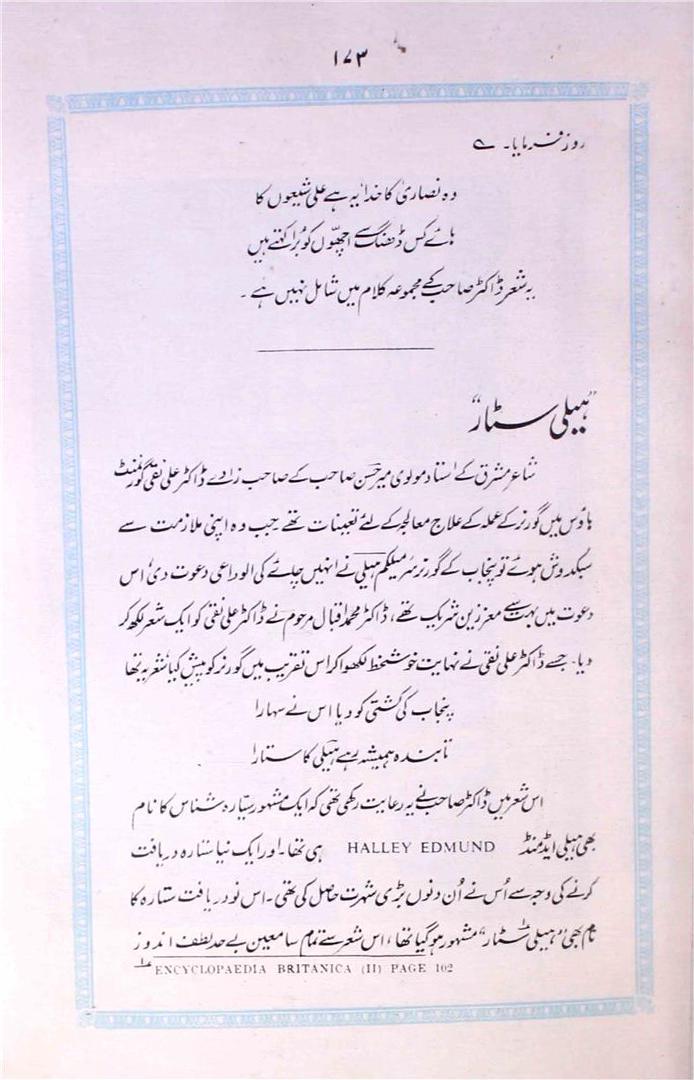 ۱۷۳
روز فرمایا۔ ے
وہ نصاریٰ کا خدا یہ ہے علی شیعوں کا
ہائے کس ڈھنگ سے اچھّوں کو بُرا کہتے ہیں
یہ شعر ڈاکٹر صاحب کے مجموعہ کلام میں شامل نہیں ہے۔
"ہیلی سٹار"
شاعر مشرق کے استاد مولوی میر حسن صاحب کے صاحب زادے ڈاکٹر علی نقی گورنمنٹ
ہاؤس میں گورنر کے عملہ کے علاج معالجہ کے لئے تعینات تھے جب وہ اپنی ملازمت سے
سبکدوش ہوئے تو پنجاب کے گورنر سر میلکم ہیلی نے انہیں چائے کی الوداعی دعوت دی، اس
دعوت میں بہت سے معززین شریک تھے، ڈاکٹر محمد اقبال مرحوم نے ڈاکٹر علی نقی کو ایک شعر لکھ کر
دیا۔ جسے ڈاکٹر علی نقی نے نہایت خوشخط لکھوا کر اس تقریب میں گورنر کو پیش کیا شعر یہ تھا
پنجاب کی کشتی کو دیا اس نے سہارا
تابندہ ہمیشہ رہے ہیلی کا ستارا
اس شعر میں ڈاکٹر صاحب نے یہ رعایت رکھی تھی کہ ایک مشہور سیّارہ شناس کا نام
بھی ہیلی ایڈمنڈ HALLEY EDMUND ہی تھا۔ اور ایک نیا ستارہ دریافت
کرنے کی وجہ سے اُس نے اُن دنوں بڑی شہرت حاصل کی تھی۔ اس نو دریافت ستارہ کا
نام بھی "ہیلی سٹار"۱؎ مشہور ہو گیا تھا، اس شعر سے تمام سامعین بے حد لطف اندوز
۱؎ ENCYCLOPAEDIA BRITANICA (II) PAGE 102